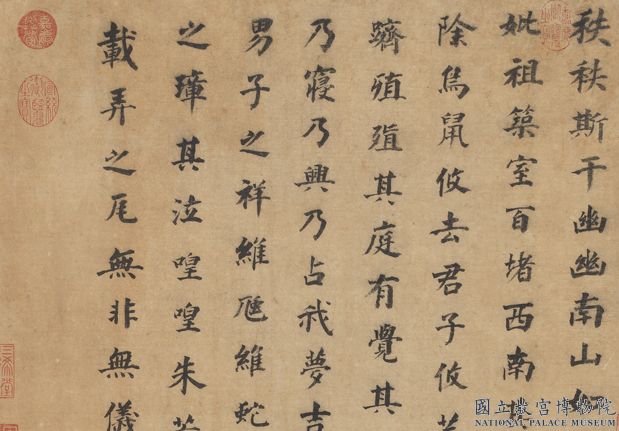 秩秩斯干幽幽南山如
妣祖築室百堵西南其
除鳥鼠攸去君子攸芋
躋殖殖其庭有覺其
乃寢乃興乃占我夢吉
男子之祥維虺維蛇
之璋其泣喤喤朱芾
載弄之瓦無非無儀
三希堂
國立故宮博物院
NATIONAL PALACE MUSEUM